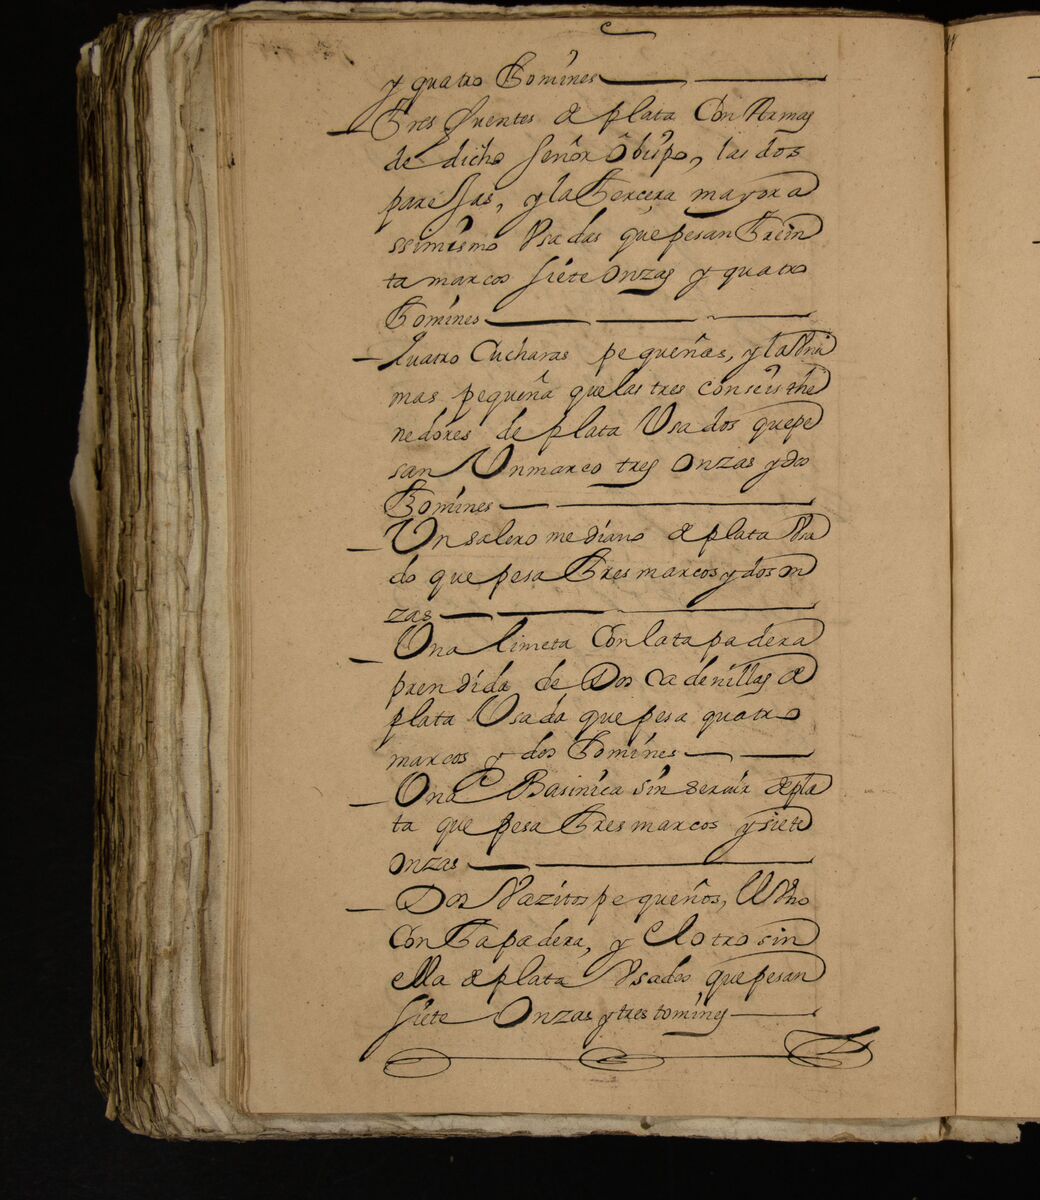 y quatro tomines
Tres fuentes de plata con Armas
de dicho señor Obispo, las dos
parejas, y la tercera mayor a
ssimismo Vsadas que pesan trein
ta marcos siete onzas y quatro
tomines
Quatro cucharas pequeñas, y la Vna
mas pequeña que las tres con seis the
nedores de plata Vsados que pe
san Vn marco tres onzas y dos
tomines
Vn salero mediano de plata Vsa
do que pesa tres marcos y dos on
zas
Vna limeta con la tapadera
prendida de dos cadenillas de
plata Vsada que pesa quatro
marcos y dos tomines
Vna Basinica sin servir de pla
ta que pesa tres marcos y siete
onzas
Dos Vazitos pequeños, el Vno
con tapadera, y el otro sin
ella de plata Vsados que pesan
siete onzas y tres tomines